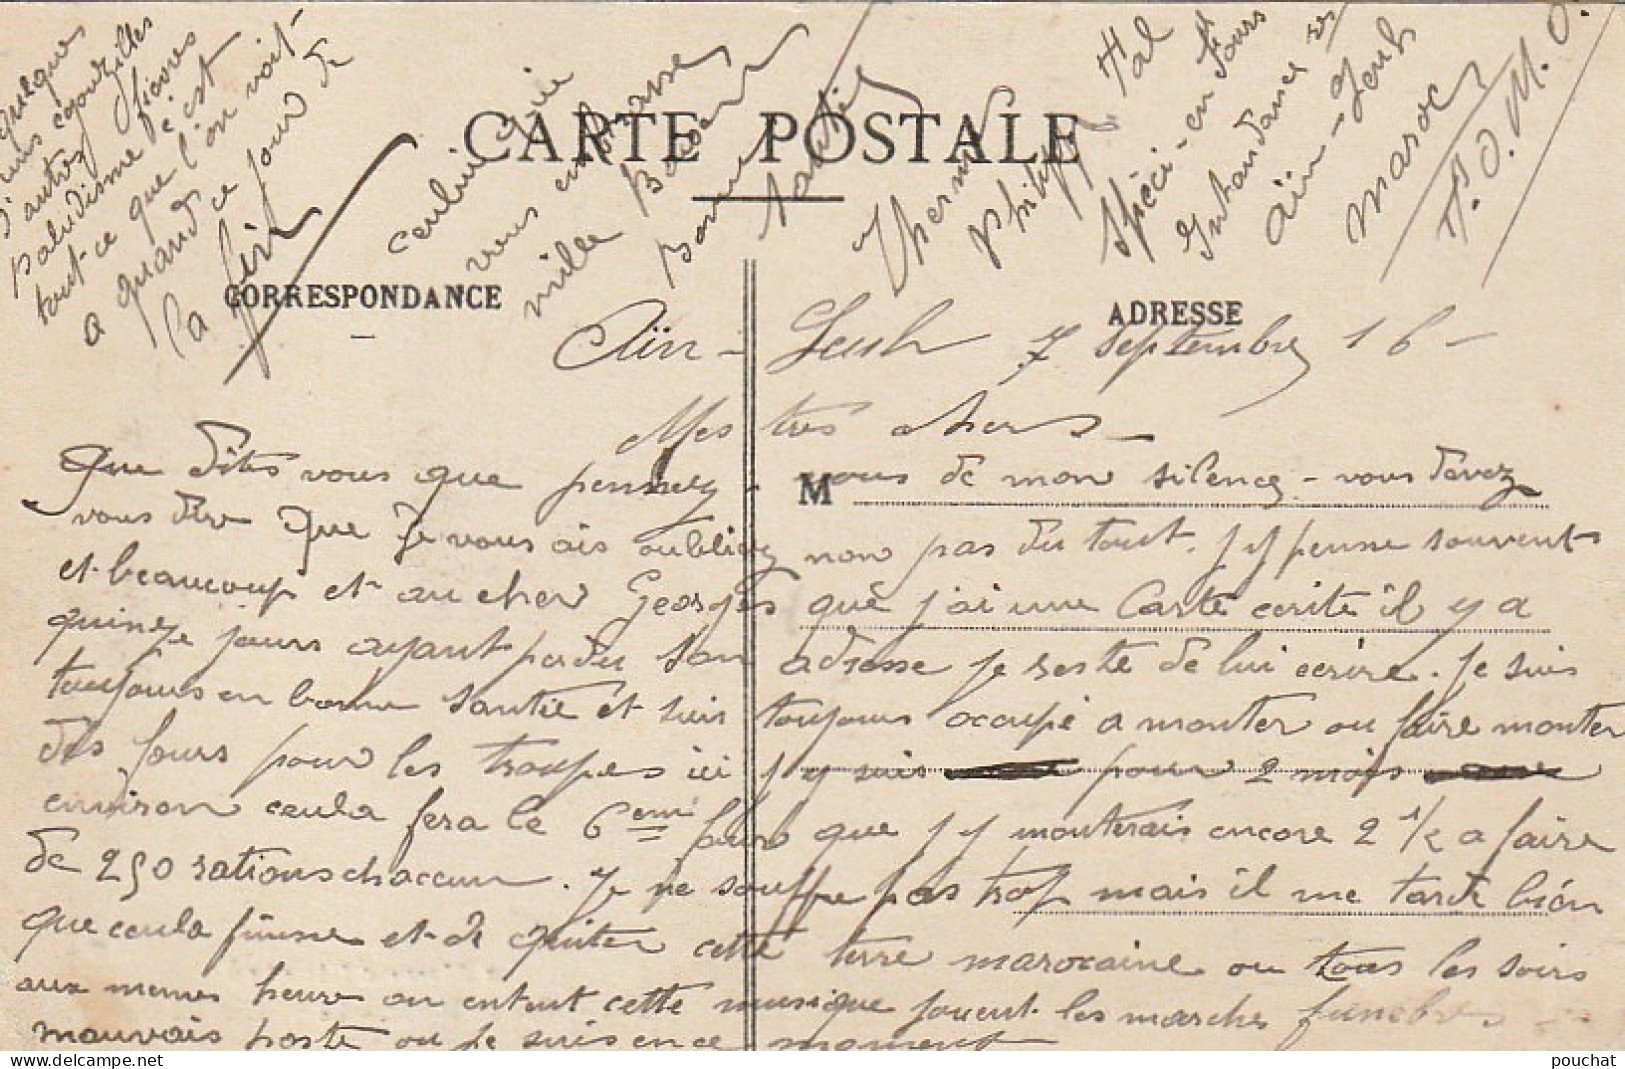 CARTE POSTALE
CORRESPONDANCE
ADRESSE
M
Aïn-Leuh 7 Septembre 16-
Mes très chers-
Que dites vous que pensez-vous de mon silence-vous devez
vous dire que je vous ais oubliez non pas du tout. j'y pense souvent
et beaucoup et au cher Georges que j'ai une Carte ecrite il y a
quinze jours ayant perdu son adresse je reste de lui ecrire. je suis
toujours en bonne santée et suis toujours occupé a monter ou faire monter
des fours pour les troupes ici j'y suis pour 2 mois
environ ceula fera le 6eme four que j'y monterais encore 2 1/2 a faire
de 250 rations chaccun. je ne souffre pas trop mais il me tarde bién
que ceula finisse et de quiter cette terre marocaine ou tous les soirs
aux memes heures on entent cette musique jouent les marches funebres
mauvais poste ou je suis en ce moment
quelques
uns
d'autres fievres
paludisme c'est
tout ce que l'on voit
a quand ce jour de
la fin
ceului qui
vous embrasse
mille
Bonne
Santée
Philipp
Spéci-en Fours
Intendance
Aïn-Leuh
Maroc
T.O.M.O.
pouchat